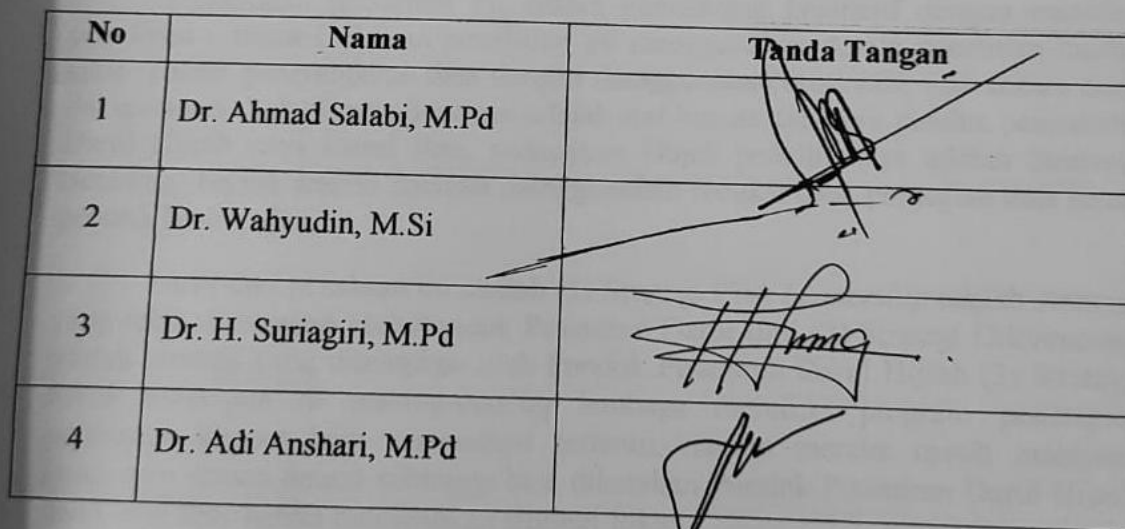 No Nama Tanda Tangan
1 Dr. Ahmad Salabi, M.Pd
2 Dr. Wahyudin, M.Si
3 Dr. H. Suriagiri, M.Pd
4 Dr. Adi Anshari, M.Pd